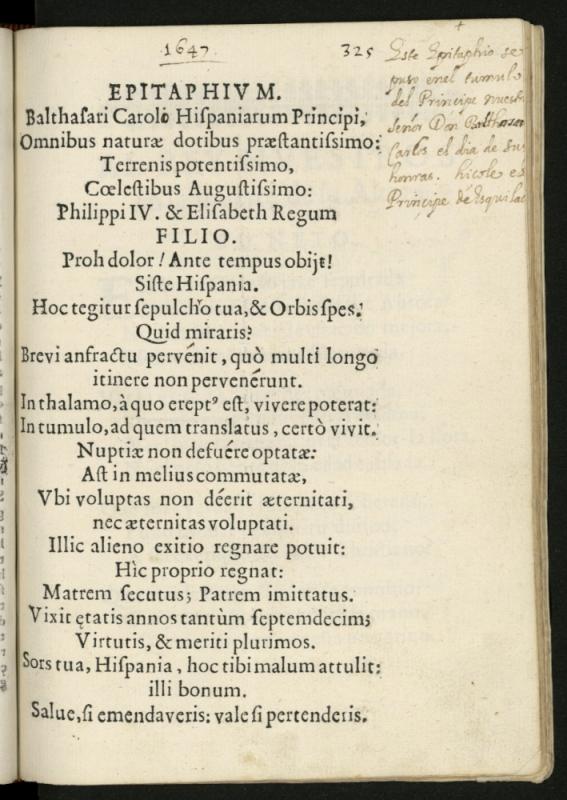 1647
325
Este Epitaphio se
puso en el tumulo
del Principe nuestr
señor Don Balthasar
Carlos el dia de sus
honras. hiçole el
Principe de Esquilac
EPITAPHIVM.
Balthaſari Carolo Hiſpaniarum Principi,
Omnibus naturæ dotibus præſtantiſsimo:
Terrenis potentiſsimo,
Cœleſtibus Auguſtiſsimo:
Philippi IV. & Eliſabeth Regum
FILIO.
Proh dolor! Ante tempus obijt!
Siſte Hiſpania.
Hoc tegitur ſepulchro tua, & Orbis ſpes.
Quid miraris?
Brevi anfractu pervénit, quò multi longo
itinere non pervenérunt.
In thalamo, à quo erept⁹ eſt, vivere poterat:
In tumulo, ad quem translatus, certò vivit.
Nuptiæ non defuére optatæ:
Aſt in melius commutatæ,
Vbi voluptas non déerit æternitati,
nec æternitas voluptati.
Illic alieno exitio regnare potuit:
Hìc proprio regnat:
Matrem ſecutus; Patrem imittatus.
Vixit ętatis annos tantùm ſeptemdecim;
Virtutis, & meriti plurimos.
Sors tua, Hiſpania, hoc tibi malum attulit:
illi bonum.
Salue, ſi emendaveris: vale ſi pertenderis.